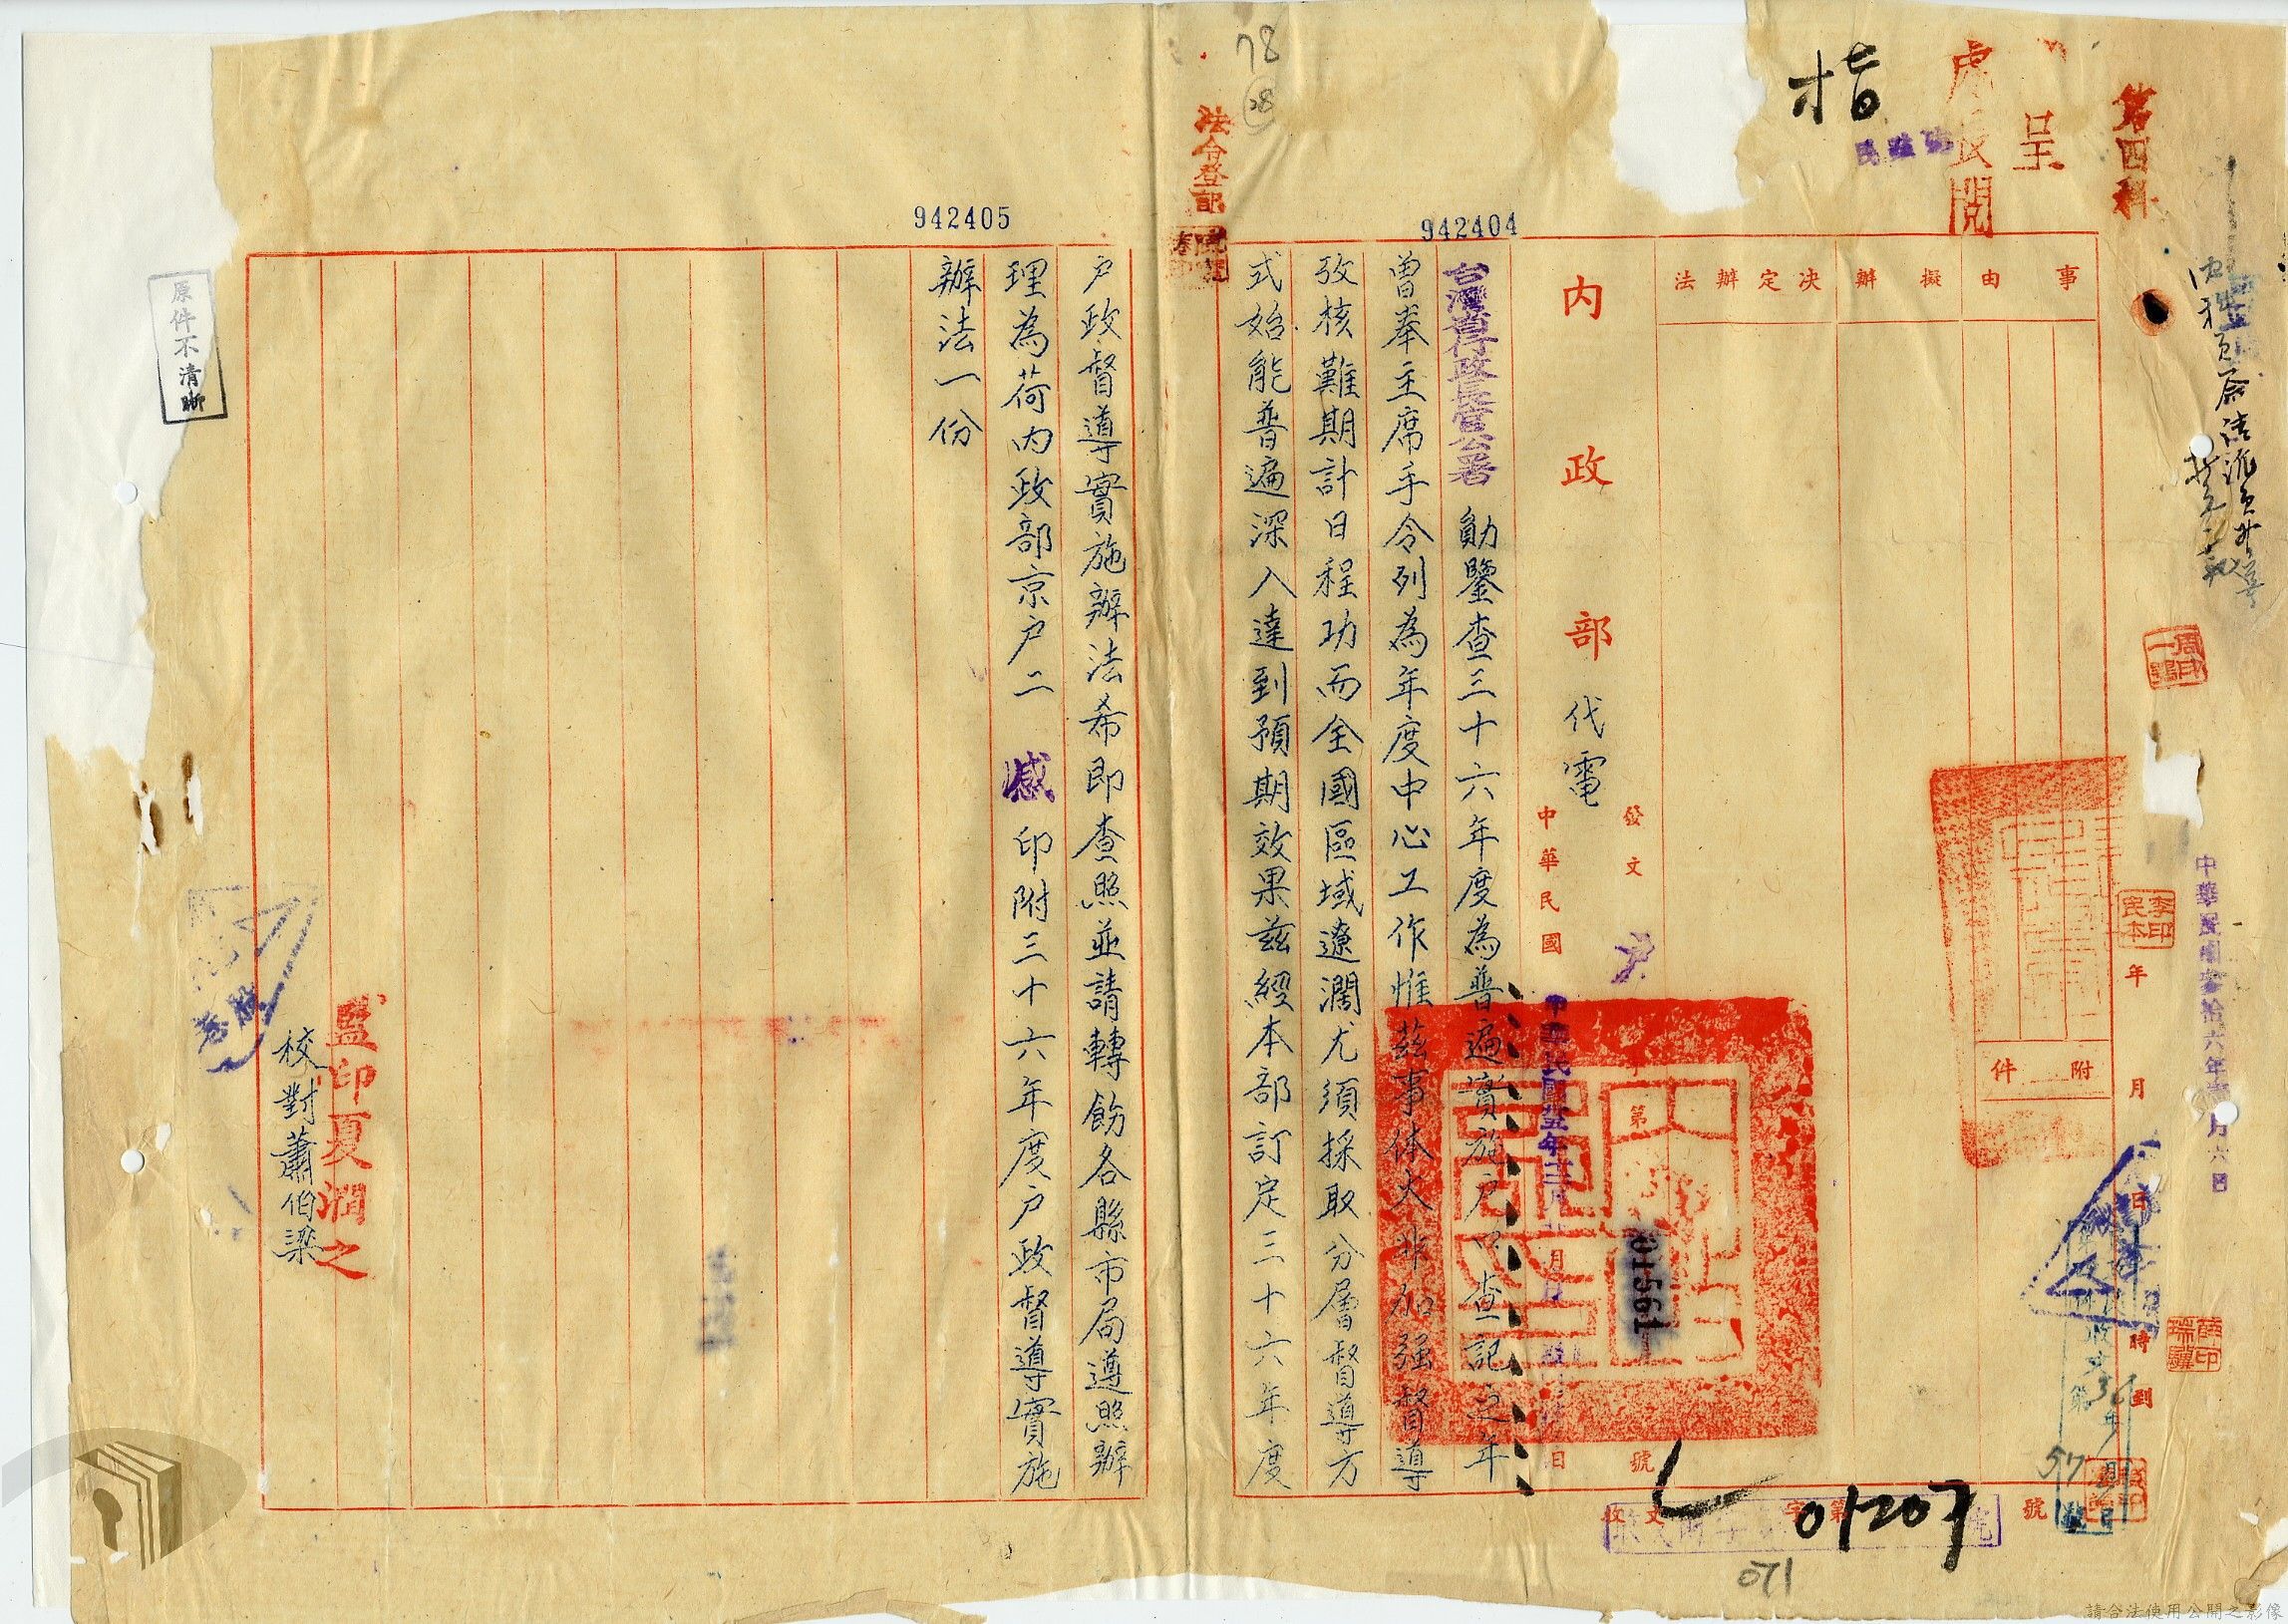 第四科
呈
處長閱
指
民政處
78
28
法令登記
942404
942405
事由
擬辦
決定辦法
附件
年月日時到
內政部代電
發文
戶
第
01561
號
中華民國
月
日
台灣省行政長官公署 勛鑒查三十六年度為普遍實施戶口查記之年
曾奉主席手令列為年度中心工作惟茲事体大非加強督導
攷核難期計日程功而全國區域遼濶尤須採取分層督導方
式始能普遍深入達到預期效果茲經本部訂定三十六年度
戶政督導實施辦法希即查照並請轉飭各縣市局遵照辦
理為荷內政部京戶二 憾 印附三十六年度戶政督導實施
辦法一份
監印夏潤之
校對蕭伯梁
原件不清晰
李印民本
收文
字第
01207
號
071
57
請合法使用公開之影像